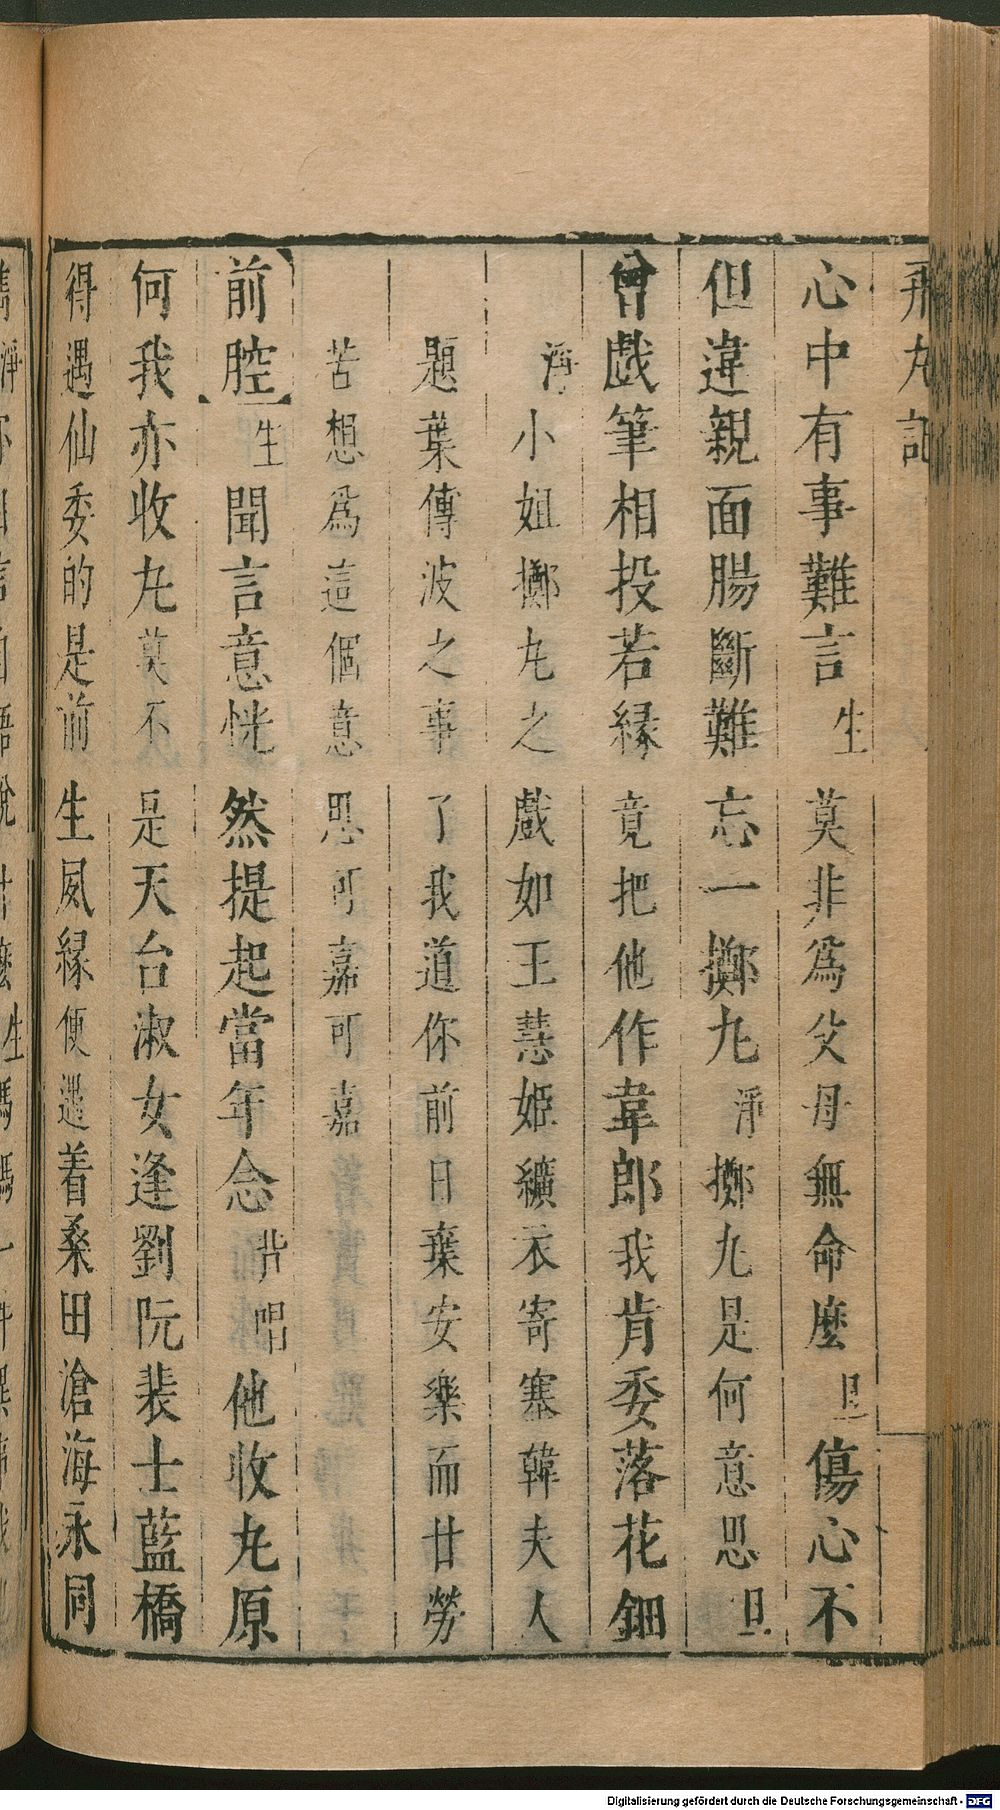 飛丸記
心中有事難言生莫非爲父母無命麽旦傷心不
但違親面腸斷難忘一擲丸淨擲丸是何意思旦
曾戲筆相投若緣竟把他作韋郎我肯委落花鈿
淨小姐擲丸之戲如王慧姬纊衣寄塞韓夫人
題葉傳波之事了我道你前日棄安樂而甘勞
苦想爲這個意思可嘉可嘉
【前腔】生聞言意恍然提起當年念背唱他收丸原
何我亦收丸莫不是天台淑女逢劉阮裴士藍橋
得遇仙委的是前生夙緣便遇着桑田滄海永同
Digitalisierung gefördert durch die Deutsche Forschungsgemeinschaft - DFG